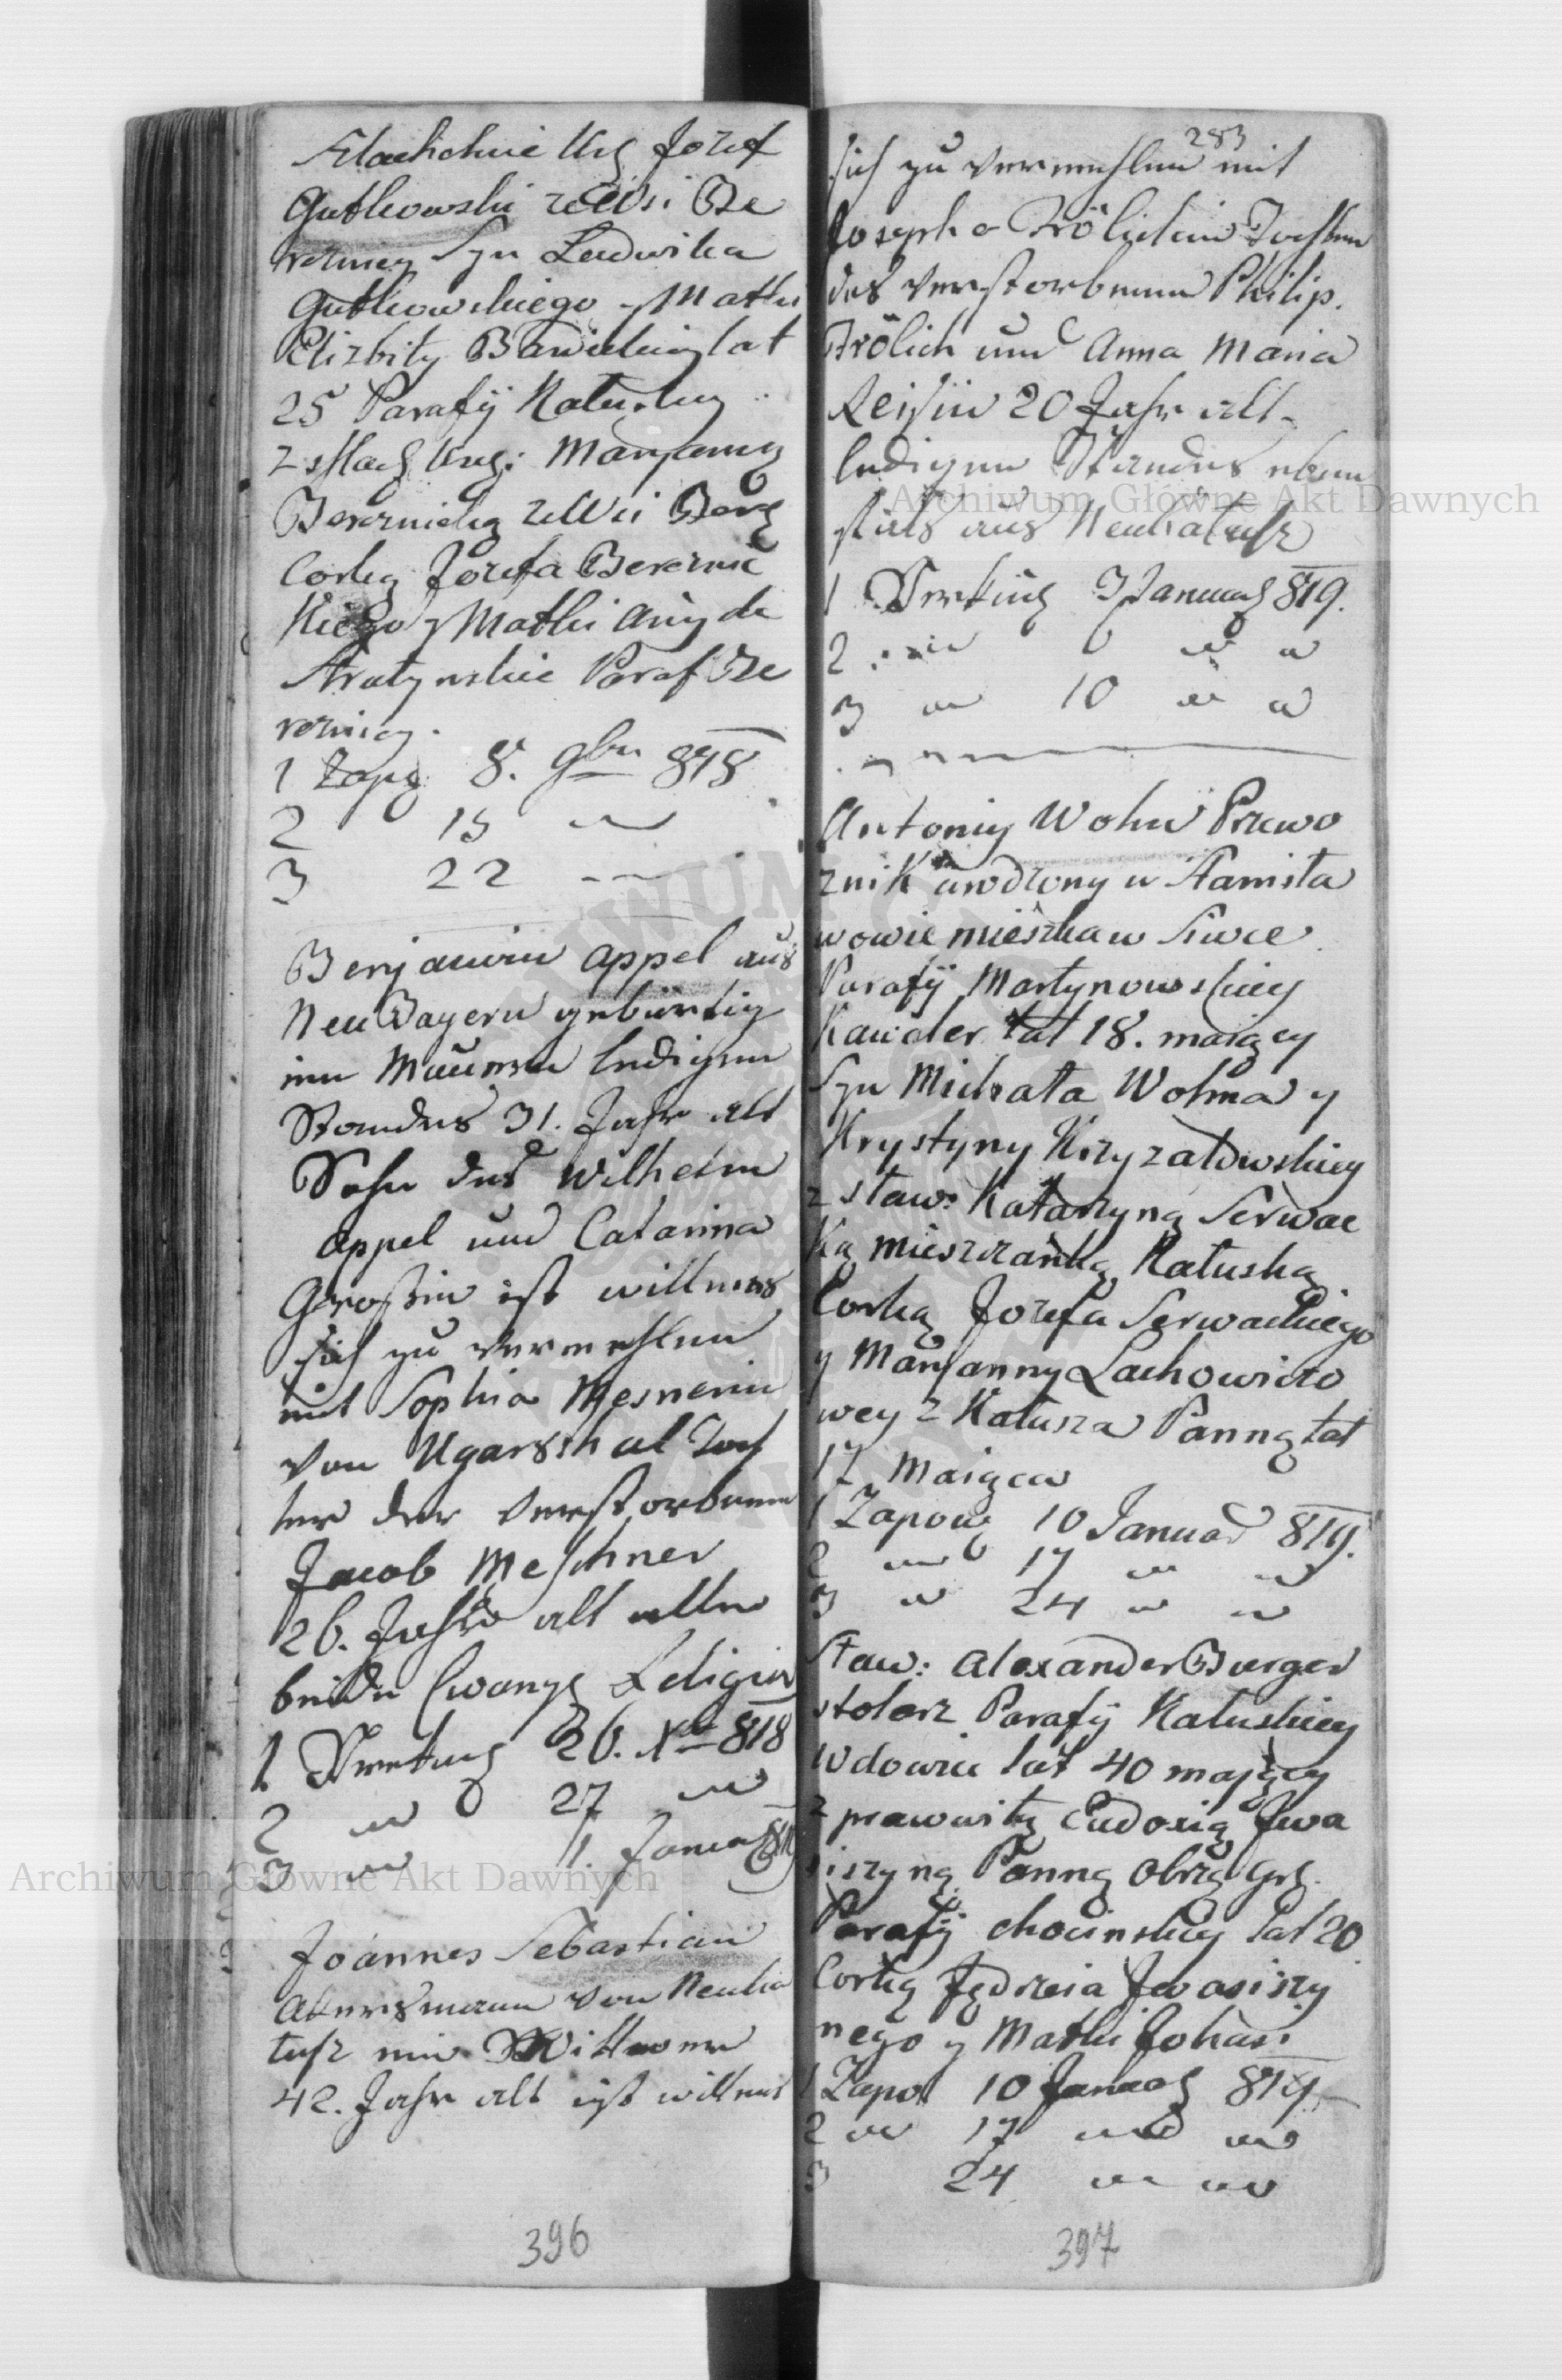 Szlachetnie Urg Jozef
Gutkowski zeWsi Be
reznicy Syn Ludwika
Gutkowskiego y Matki
Elizbity Bawieckiey lat
25 Parafÿ Kałuskey
z szlach Urg: Maryanną
Bereznicką zeWsi Berez
Corką Jozefa Bereznic
Kiego y Matki
Stratynskie Paraf Be
reznicy.
1 Zapo 8. 9bri 818
2 15 —
3 22 —
Benjamin Appel aus
Neu Bayern gebürtig
ledigen
Standes 31. Jahr alt
Sohn des Wilhelm
Appel und Catarina
Großin ist willens
sich zu vermehlen
mit Sophia Mesnerin
von Ugarsthal Toch
ter der verstorbenen
Jacob Meschner
26. Jahr alt alle
beide Ewang Religion
1 Verking 26. Xbr 818
2 " 27 "
3 " 1. Januar 819
Joannes Sebastian
Akersmann von Neuka
lusz ein Wittwer
42. Jahr alt ist willens
396
283
sich zu vermehlen mit
Josepha Frölichin Tochter
des verstorbenen Philip.
Frölich und Anna Maria
Reisin 20 Jahr alt
ledigen Standes eben
fals aus Neukalusz
1 Verking 3 Januar 819.
2 " 6 " "
3 " 10 " "
Antoniy Wohn Przewo
znik urodzony w Stanisła
wowie mieszka w Siwce
Parafÿ Martynowskiey
Kawaler lat 18. maiący
Syn Michała Wohna y
Krystyny Krzyzanowskiey
z sław: Katarzyną Serwac
Ką mieszczanką Kałuską
Corką Jozefa Serwackiego
y Maryanny Lachowiczo
wey z Kałusza Panną lat
17 Maiąca
1 Zapow 10 Januar 819.
2 " 17 " "
3 " 24 " "
Sław: Alexander Burger
stolarz Parafÿ Kałuskiey
Wdowiec lat 40 mający
z prawowitą Eudoxią Iwa
siszyną Panną Obrzą Grg.
Parafÿ chocinskiey lat 20
Corką Jędrzeia Iwasiszy
nego y Matki
1 Zapo 10 Januar 819
2 " 17 " "
3 24 " "
397
Archiwum Główne Akt Dawnych
Archiwum Główne Akt Dawnych